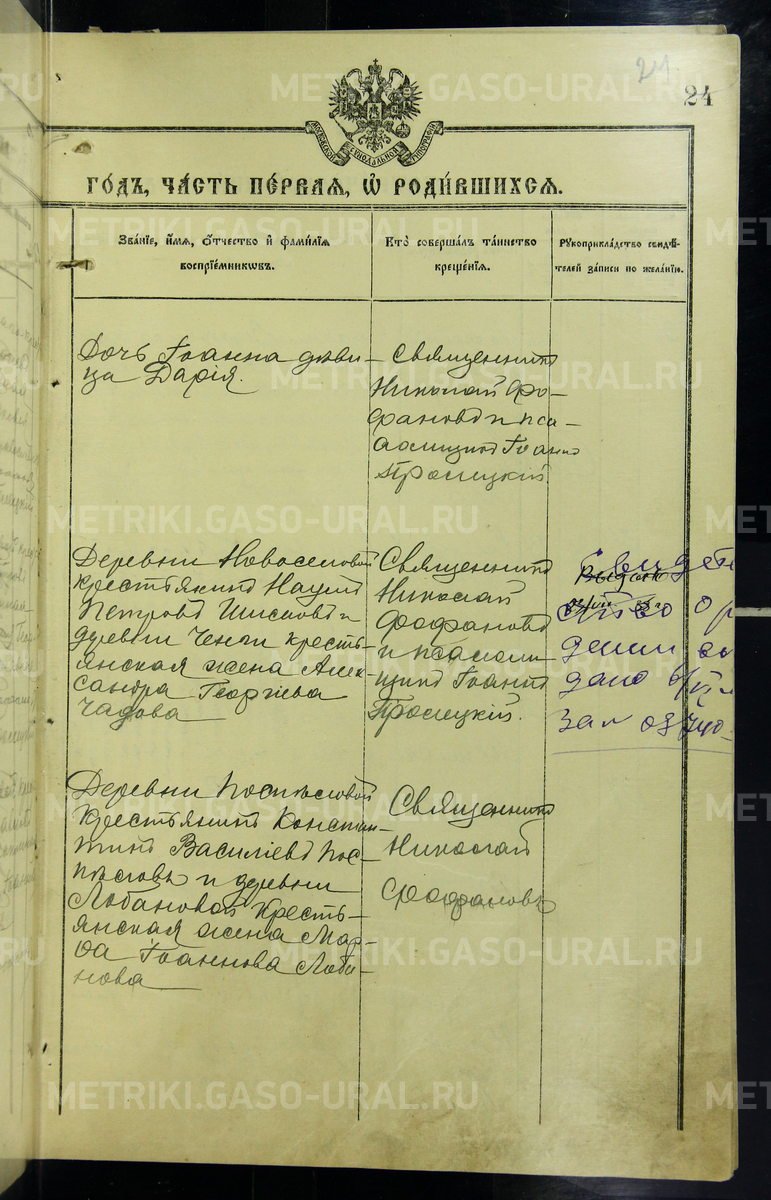 24
24
МОСКОВСКОЙ СѴНОДАЛЬНОЙ ТИПОГРАФІИ
ГО́ДЪ, ЧА́СТЬ ПЕ́РВАЯ, Ѡ҆ РОДИ́ВШИХСЯ.
Зва́нїе, и҆́мя, ѻ҆́тчество и҆ фами́лїя
воспрїе́мниковъ.
Кто̀ соверша́лъ та́инство
креще́нїя.
Рꙋкоприкла́дство свидѣ́-
телей за́писи по жела́нїю.
Дочь Іоанна дѣви-
ца Дарія.
Священникъ
Николай Фо-
фановъ и пса-
ломщикъ Іоаннъ
Деревни Новоселовой
крестьянинъ Наумъ
Петровъ и
деревни кресть-
янская жена Алек-
сандра Георгіева
Чадова
Священникъ
Николай
Фофановъ
и псалом-
щикъ Іоаннъ
Выдано
дано
Деревни Поспѣловой
крестьянинъ Констан-
тинъ Василіевъ Пос-
пѣловъ и деревни
Лобановой кресть-
янская жена Мар-
ѳа Іоаннова Лоба-
нова
Священникъ
Николай
Фофановъ
METRIKI.GASO-URAL.RU